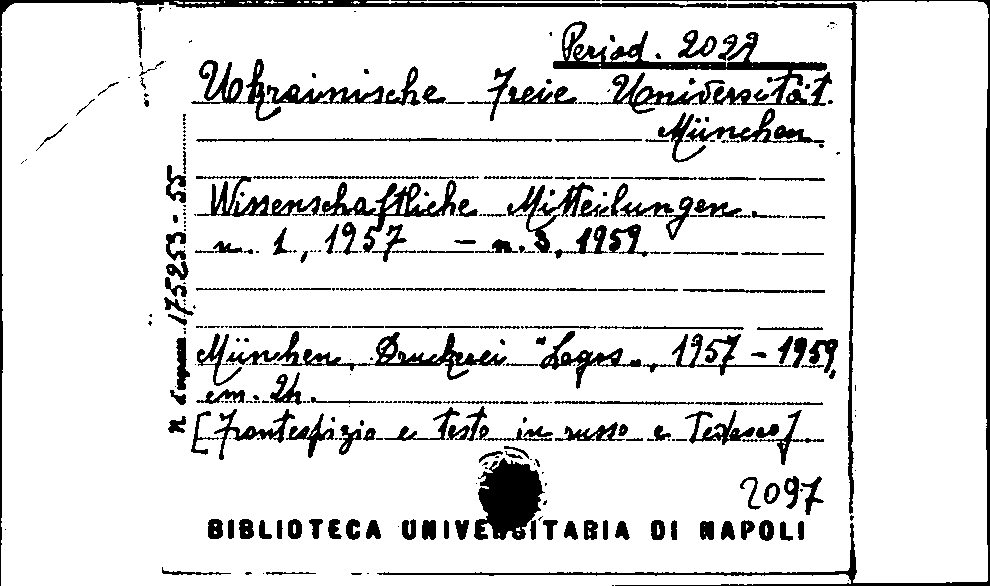 Period. 2022
Ukrainische Freie Universität.
München.
Wissenschaftliche Mitteilungen.
n. 1, 1957 – n. 3, 1959.
München, Druckerei "Logos", 1957 – 1959,
cm. 24.
[Frontespizio e testo in russo e Tedesco].
N. d'ingresso 175253-55
2097
BIBLIOTECA UNIVERSITARIA DI NAPOLI